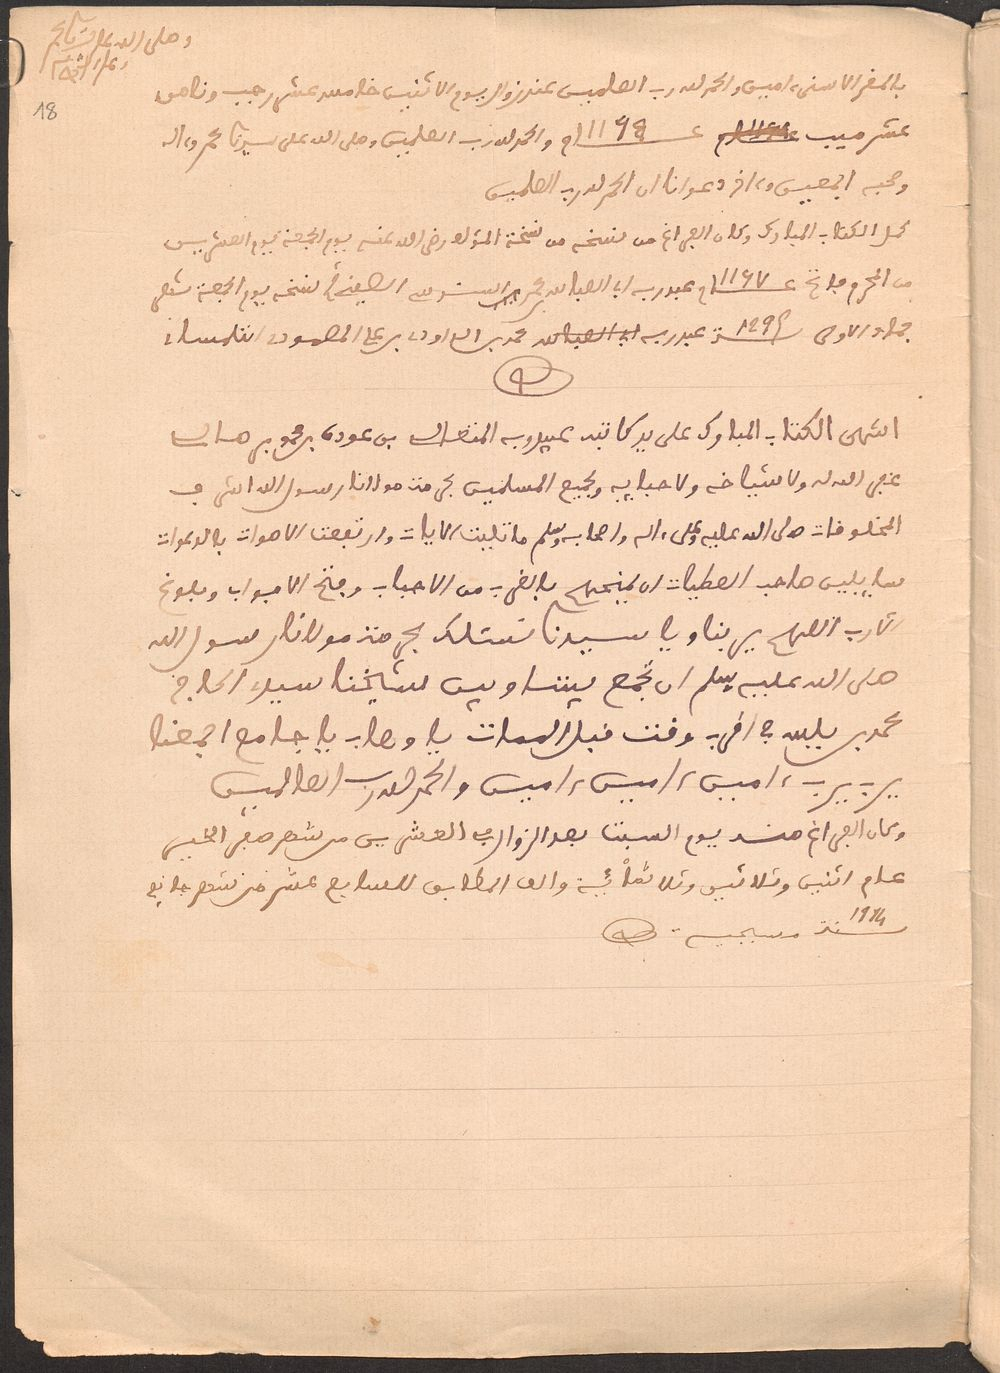 وصلى الله على
18
بالمقر الاسنى ءامين والحمد لله رب العلمين عند زوال يوم الاثنين خامس عشر رجب وثامن
عشر ميب عــ 1164ـام والحمد لله رب العلمين وصلى الله على سيدنا محمد وءاله
وصحبه اجمعين وءاخر دعوانا ان الحمد لله رب العلمين
كمل الكتاب المبارك وكان الفراغ من نسخه من نسخة المؤلف رضي الله عنه يوم الجمعة يوم العشرين
من المحرم فاتح عــ 1167ـام عبد ربه ابي العباس نسخه يوم الجمعة
جماد الاولى سنة 1295 عبد ربه محمد بن علي
انتهى الكتاب المبارك على يد كاتبه عبيد ربه بن عودة بن
غفر الله له ولاشياخه ولاحبابه ولجميع المسلمين بحرمة مولانا رسول الله اشرف
المخلوقات صلى الله عليه وعلى ءاله واصحابه وسلم ما تليت الايات وارتفعت الاصوات بالدعوات
سايلين صاحب العطيات ان يمنحهم بالقرب من الاحباب وفتح الابواب وبلوغ
اللهم يربنا ويا سيدنا نسئلك بحرمة مولانا رسول الله
صلى الله عليه وسلم ان تجمع بيننا وبين شيخنا سيدي الحاج
محمد بن يلس في اقرب وقت قبل الممات يا وهاب يا جامع اجمعنا
يرب يرب ءامين ءامين ءامين والحمد لله رب العالمين
وكان الفراغ منه يوم السبت بعد الزوال في العشرين من شهر صفر الخير
عام اثنين وثلاثين وثلاثمائة والف المطابق للسابع عشر من شهر جانفي
سنة 1914 مسيحية